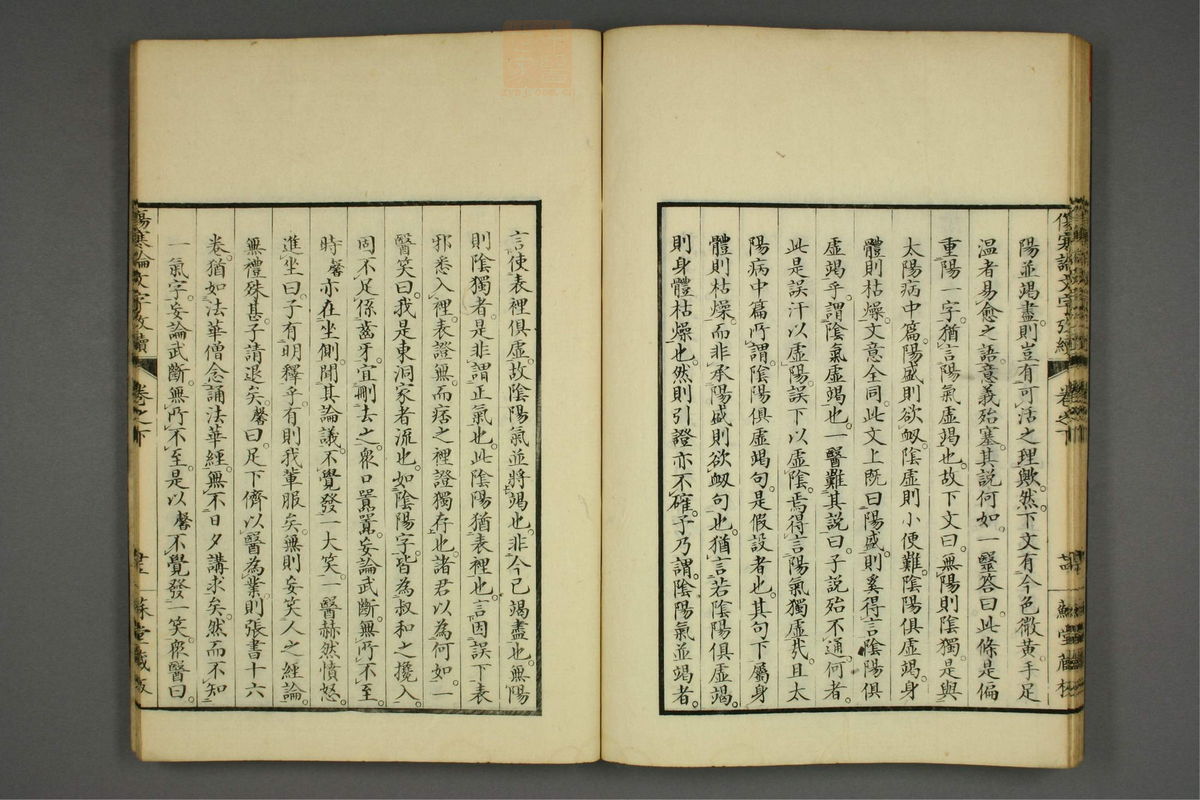 陽並竭盡則豈有可活之理歟。然下文有今色微黃。手足
温者易愈之語。意義殆塞。其説何如。一醫答曰。此條是偏
重陽一字。猶言陽氣虛竭也。故下文曰。無陽則陰獨。是與
太陽病中篇。陽盛則欲衂。陰虛則小便難。陰陽俱虛竭。身
體則枯燥。文意全同。此文上既曰陽盛。則奚得言陰陽俱
虛竭乎。謂陰氣虛竭也。一醫難其説曰。子説殆不通。何者。
此是誤汗以虛陽。誤下以虛陰。焉得言陽氣獨虛哉。且太
陽病中篇。所謂陰陽俱虛竭句。是假設者也。其句下屬身
體則枯燥。而非承陽盛則欲衂句也。猶言若陰陽俱虛竭。
則身體枯燥也。然則引證亦不確。予乃謂。陰陽氣並竭者。
言使表裡俱虛。故陰陽氣並將竭也。非今已竭盡也。無陽
則陰獨者。是非謂正氣也。此陰陽猶表裡也。言因誤下表
邪悉入裡。表證無而痞之裡證獨存也。諸君以為何如。一
醫笑曰。我是東洞家者流也。如陰陽字。皆為叔和之攙入
固不足係齒牙。宜刪去之。衆口囂囂。妄論武斷。無所不至
時馨亦在坐側。聞其論議。不覺發一大笑。一醫赫然憤怒。
進坐曰。子有明釋乎。有則我輩服矣。無則妄笑人之經論。
無禮殊甚。子請退矣。馨曰。足下儕以醫為業。則張書十六
卷。猶如法華僧念誦法華經。無不日夕講求矣。然而不知
一氣字。妄論武斷。無所不至。是以馨不覺發一笑。衆醫曰。
傷寒論文字攷續
卷之下